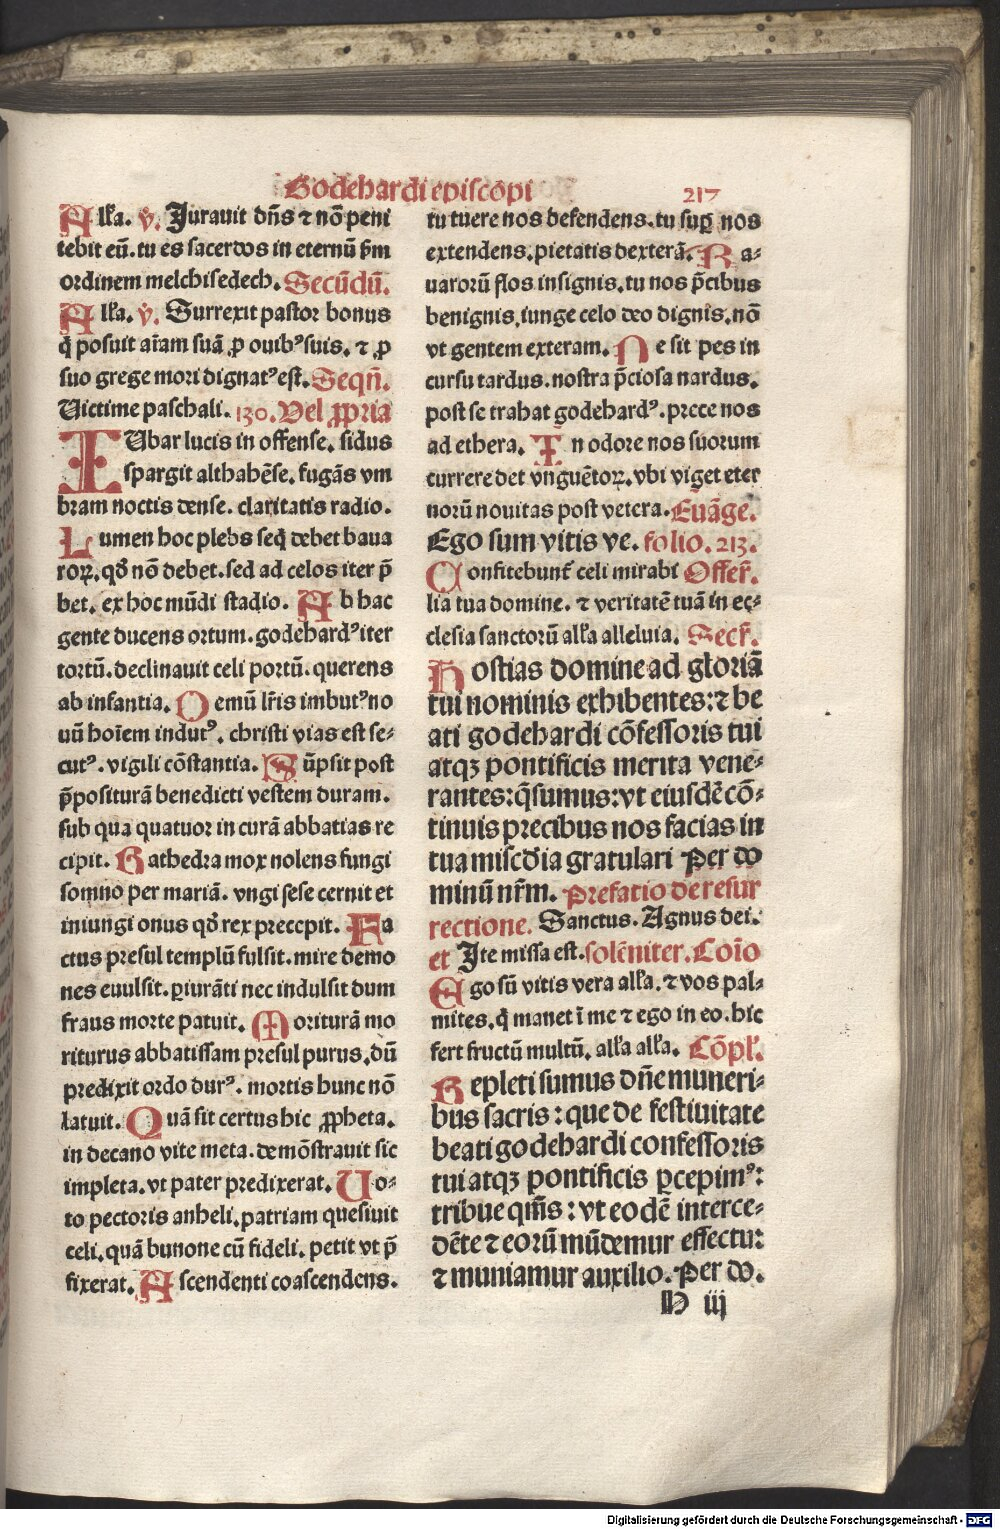 Godehardi episcopi 217
Alľa. ꝟ. Jurauit dn̄s ⁊ nō peni
tebit eū. tu es sacerdos in eternū ẜm
ordinem melchisedech. Secūdū.
Alľa. ꝟ. Surrexit pastor bonus
q̇ posuit aīam suā ꝓ ouibꝰ suis. ⁊ ꝓ
suo grege mori dignatꝰ est. Seqn̄.
Victime paschali. 130. Vel ꝓpria
IUbar lucis in offense. sidus
spargit althahēse. fugās vm
bram noctis dense. claritatis radio.
Lumen hoc plebs seq̇ debet baua
roꝝ. qđ nō debet. sed ad celos iter p̄
bet. ex hoc mūdi stadio. Ab hac
gente ducens ortum. godehardꝰ iter
tortū. declinauit celi portū. querens
ab infantia. Demū lr̄is imbutꝰ no
uū hoīem indutꝰ. christi vias est se⸗
cutꝰ. vigili cōstantia. Sūpsit post
p̄positurā benedicti vestem duram.
sub qua quatuor in curā abbatias re
cipit. Cathedra mox nolens fungi
somno per mariā. vngi sese cernit et
iniungi onus qđ rex precepit. Fa
ctus presul templū fulsit. mire demo
nes euulsit. ꝑiurāti nec indulsit dum
fraus morte patuit. Moriturā mo
riturus abbatissam presul purus. dū
predixit ordo durꝰ. mortis hunc nō
latuit. Quā sit certus hic ꝓpheta.
in decano vite meta. demōstrauit sic
impleta. vt pater predixerat. Uo⸗
to pectoris anheli. patriam quesiuit
celi. quā bunone cū fideli. petit vt p̄
fixerat. Ascendenti coascendens.
tu tuere nos defendens. tu suꝑ nos
extendens. pietatis dexterā. Ba⸗
uarorū flos insignis. tu nos p̄cibus
benignis. iunge celo deo dignis. nō
vt gentem exteram. Ne sit pes in
cursu tardus. nostra p̄ciosa nardus.
post se trahat godehardꝰ. prece nos
ad ethera. In odore nos suorum
currere det vnguētoꝝ. vbi viget eter
norū nouitas post vetera. Euāge.
Ego sum vitis ve. folio. 213.
Confitebunť celi mirabi Offeř.
lia tua domine. ⁊ veritatē tuā in ec⸗
clesia sanctorū alľa alleluia. Secř.
Hostias domine ad gloriā
tui nominis exhibentes: ⁊ be
ati godehardi cōfessoris tui
atqꝫ pontificis merita vene⸗
rantes: q̄sumus: vt eiusdē cō⸗
tinuis precibus nos facias in
tua miscđia gratulari Per do
minū nr̄m. Prefatio de resur
rectione. Sanctus. Agnus dei.
et Ite missa est. solēniter. Coīo
Ego sū vitis vera alľa. ⁊ vos pal⸗
mites. q̇ manet ī me ⁊ ego in eo. hic
fert fructū multū. alľa alľa. Cōpľ.
Repleti sumus dn̄e muneri⸗
bus sacris: que de festiuitate
beati godehardi confessoris
tui atqꝫ pontificis ꝑcepimꝰ:
tribue qm̄s: vt eodē interce⸗
dēte ⁊ eorū mūdemur effectu:
⁊ muniamur auxilio. Per do.
H iij
Digitalisierung gefördert durch die Deutsche Forschungsgemeinschaft - DFG